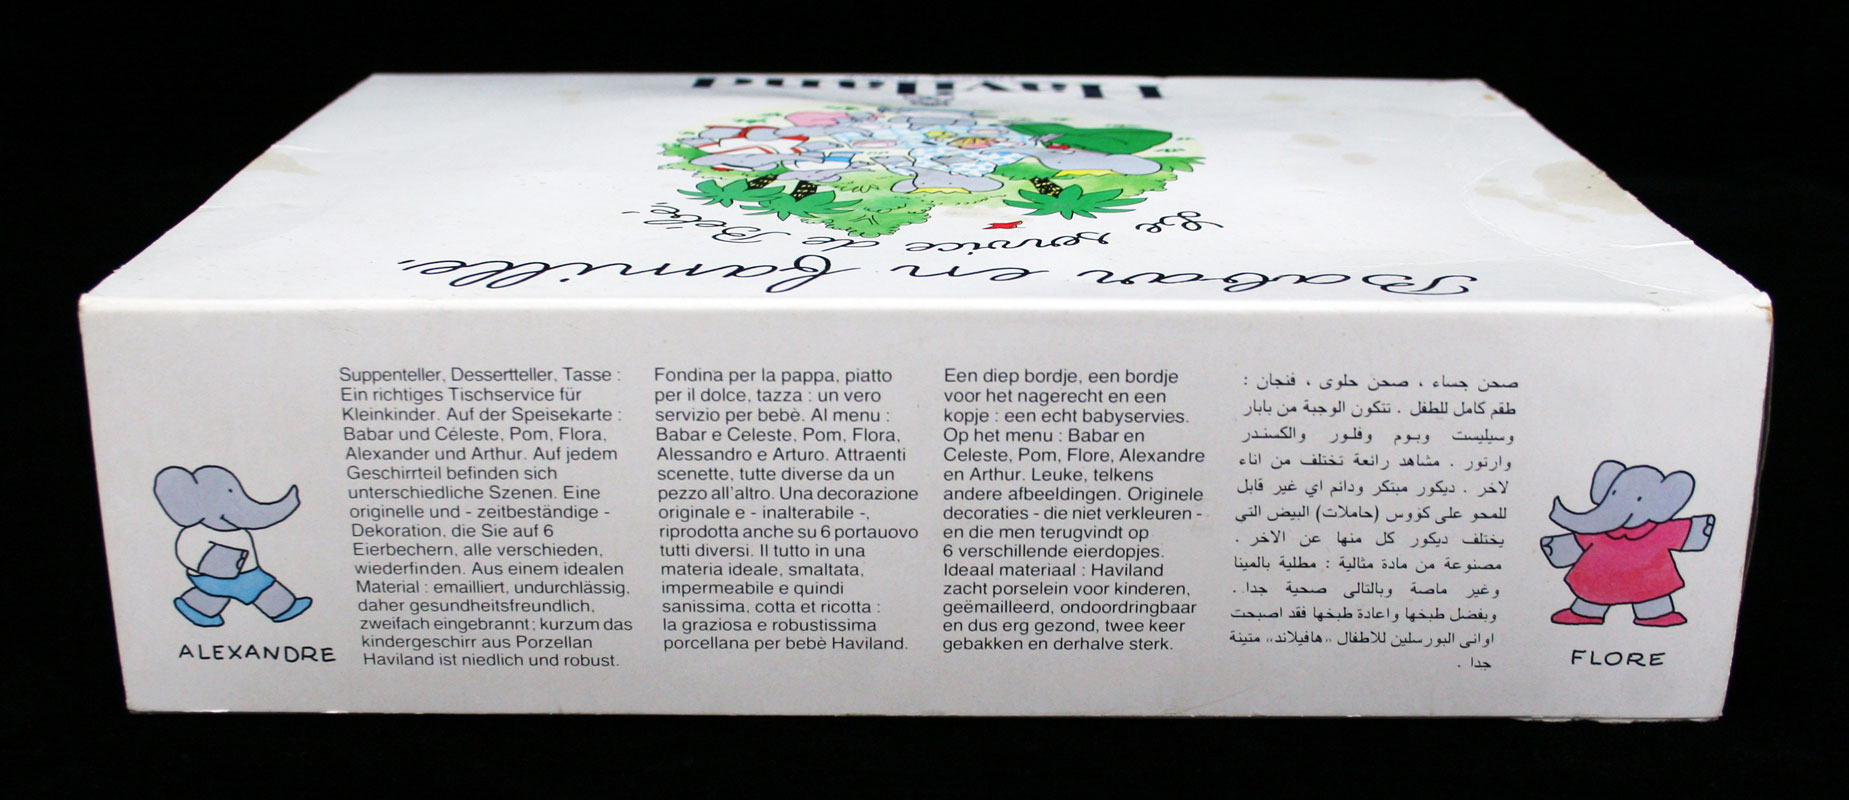 Haviland
Le service de Bébé.
Babar en famille.
Suppenteller, Dessertteller, Tasse :
Ein richtiges Tischservice für
Kleinkinder. Auf der Speisekarte :
Babar und Céleste, Pom, Flora,
Alexander und Arthur. Auf jedem
Geschirrteil befinden sich
unterschiedliche Szenen. Eine
originelle und - zeitbeständige -
Dekoration, die Sie auf 6
Eierbechern, alle verschieden,
wiederfinden. Aus einem idealen
Material : emailliert, undurchlässig,
daher gesundheitsfreundlich,
zweifach eingebrannt; kurzum das
kindergeschirr aus Porzellan
Haviland ist niedlich und robust.
Fondina per la pappa, piatto
per il dolce, tazza : un vero
servizio per bebè. Al menu :
Babar e Celeste, Pom, Flora,
Alessandro e Arturo. Attraenti
scenette, tutte diverse da un
pezzo all'altro. Una decorazione
originale e - inalterabile -,
riprodotta anche su 6 portauovo
tutti diversi. Il tutto in una
materia ideale, smaltata,
impermeabile e quindi
sanissima, cotta et ricotta :
la graziosa e robustissima
porcellana per bebè Haviland.
Een diep bordje, een bordje
voor het nagerecht en een
kopje : een echt babyservies.
Op het menu : Babar en
Celeste, Pom, Flore, Alexandre
en Arthur. Leuke, telkens
andere afbeeldingen. Originele
decoraties - die niet verkleuren -
en die men terugvindt op
6 verschillende eierdopjes.
Ideaal materiaal : Haviland
zacht porselein voor kinderen,
geëmailleerd, ondoordringbaar
en dus erg gezond, twee keer
gebakken en derhalve sterk.
صحن حساء ، صحن حلوى ، فنجان :
طقم كامل للطفل . تتكون الوجبة من بابار
وسيليست وبوم وفلور والكسندر
وارتور . مشاهد رائعة تختلف من اناء
لاخر . ديكور مبتكر ودائم اي غير قابل
للمحو على كؤوس (حاملات) البيض التي
يختلف ديكور كل منها عن الاخر .
مصنوعة من مادة مثالية : مطلية بالمينا
وغير ماصة وبالتالى صحية جدا .
وبفضل طبخها واعادة طبخها فقد اصبحت
اوانى البورسلين للاطفال «هافيلاند» متينة
جدا .
ALEXANDRE
FLORE